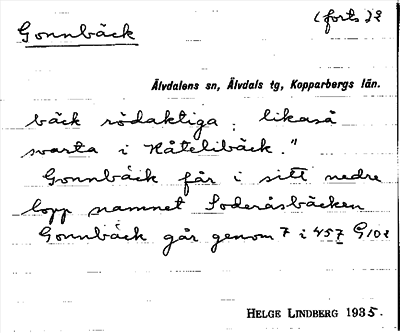 (forts.) 2
Gonnbäck
Älvdalens sn, Älvdals tg, Kopparbergs län.
bäck rödaktiga; likaså
svarta i Kåtelibäck."
Gonnbäck får i sitt nedre
lopp namnet Soderåsbäcken
Gonnbäck går genom 7 i 457 G10a
HELGE LINDBERG 1935.